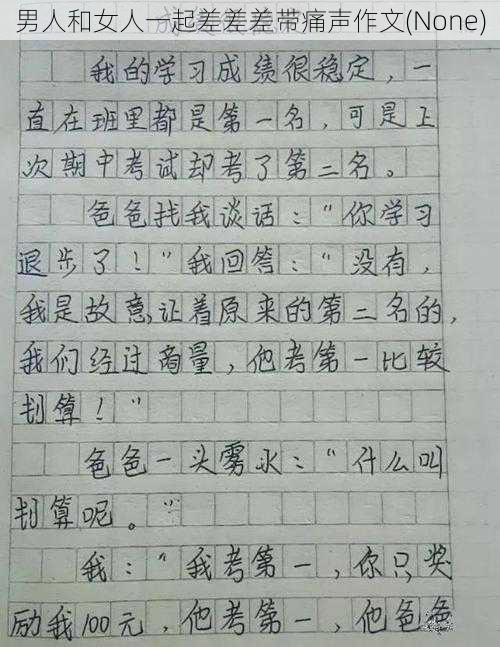 男人和女人一起差差差带痛声作文(None)
我的学习成绩很稳定，一
直在班里都是第一名，可是上
次期中考试却考了第二名。
爸爸找我谈话：“你学习
退步了！”我回答：“没有，
我是故意让着原来的第二名的，
我们经过商量，他考第一比较
划算！”
爸爸一头雾水：“什么叫
划算呢。”
我：“我考第一，你只奖
励我100元，他考第一，他爸爸